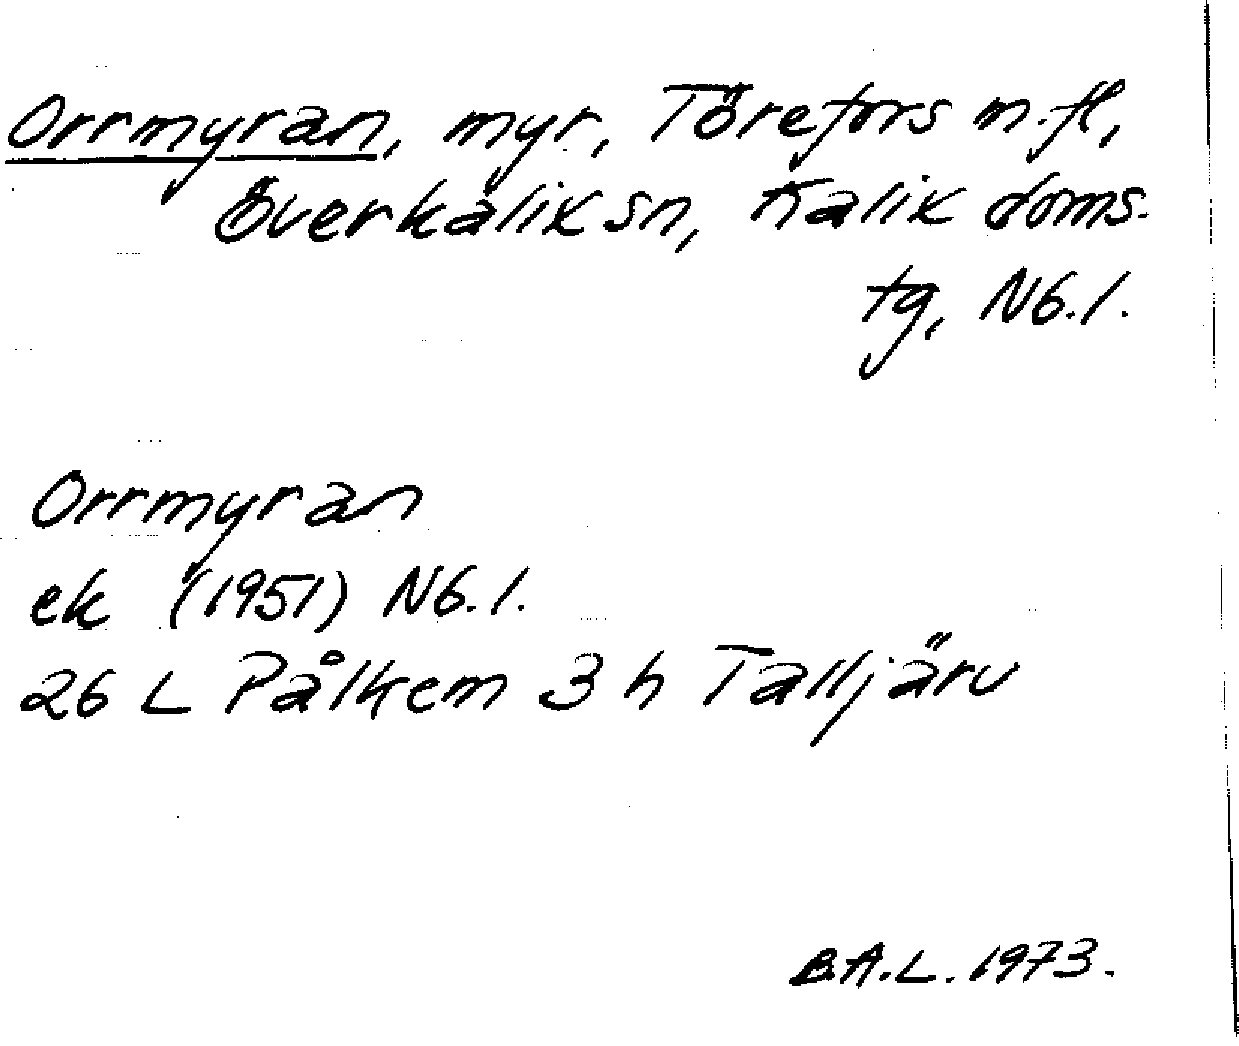 Orrmyran, myr, Törefors m.fl,
Överkalix sn, Kalix doms-
tg, Nb.l.
Orrmyran
ek (1951) Nb.l.
26 L Pålkem 3 h Talljärv
B.A.L. 1973.